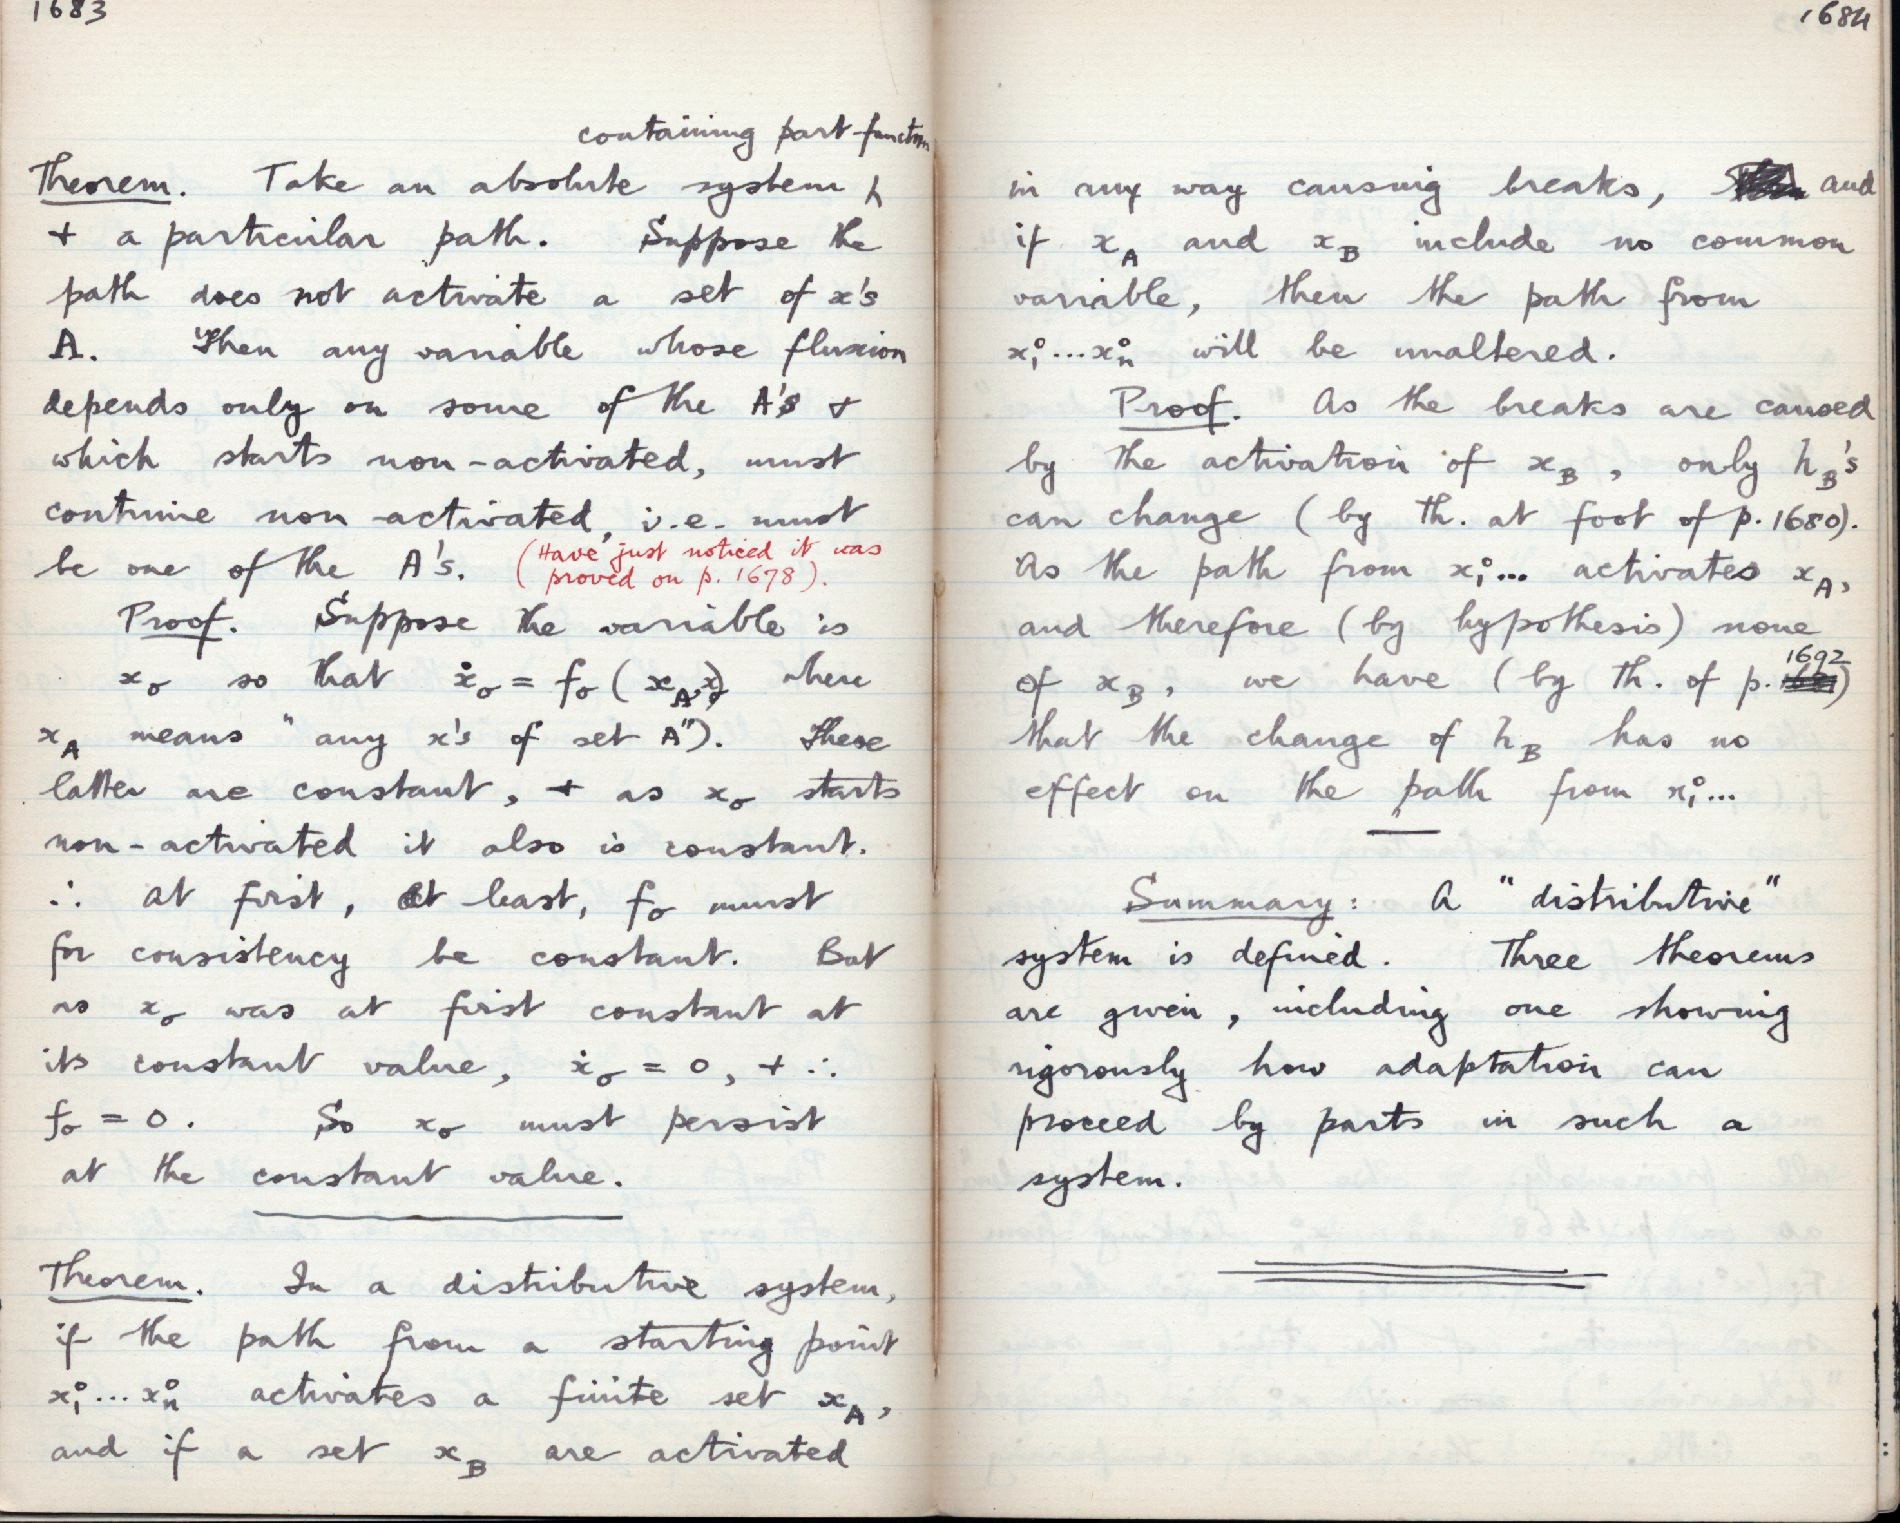 1683
containing part-function
Theorem. Take an absolute system
+ a particular path. Suppose the
path does not activate a set of x's
A. Then any variable whose fluxion
depends only on some of the A's +
which starts non-activated, must
continue non-activated, i.e. must
be one of the A's. (Have just noticed it was
proved on p. 1678).
Proof. Suppose the variable is
xσ so that ẋσ = fσ(xA, xσ) where
xA means "any x's of set A"). These
latter are constant, + as xσ starts
non-activated it also is constant.
∴ at first, at least, fσ must
for consistency be constant. But
as xσ was at first constant at
its constant value, ẋσ = 0, + ∴
fσ = 0. So xσ must persist
at the constant value.
Theorem. In a distributive system,
if the path from a starting point
x₁⁰...xₙ⁰ activates a finite set xA,
and if a set xB are activated
1684
in any way causing breaks, and
if xA and xB include no common
variable, then the path from
x₁⁰...xₙ⁰ will be unaltered.
Proof. As the breaks are caused
by the activation of xB, only hB's
can change (by Th. at foot of p. 1680).
As the path from x₁⁰... activates xA,
and therefore (by hypothesis) none
of xB, we have (by Th. of p. 1692)
that the change of hB has no
effect on the path from x₁⁰...
Summary: A "distributive"
system is defined. Three theorems
are given, including one showing
rigorously how adaptation can
proceed by parts in such a
system.